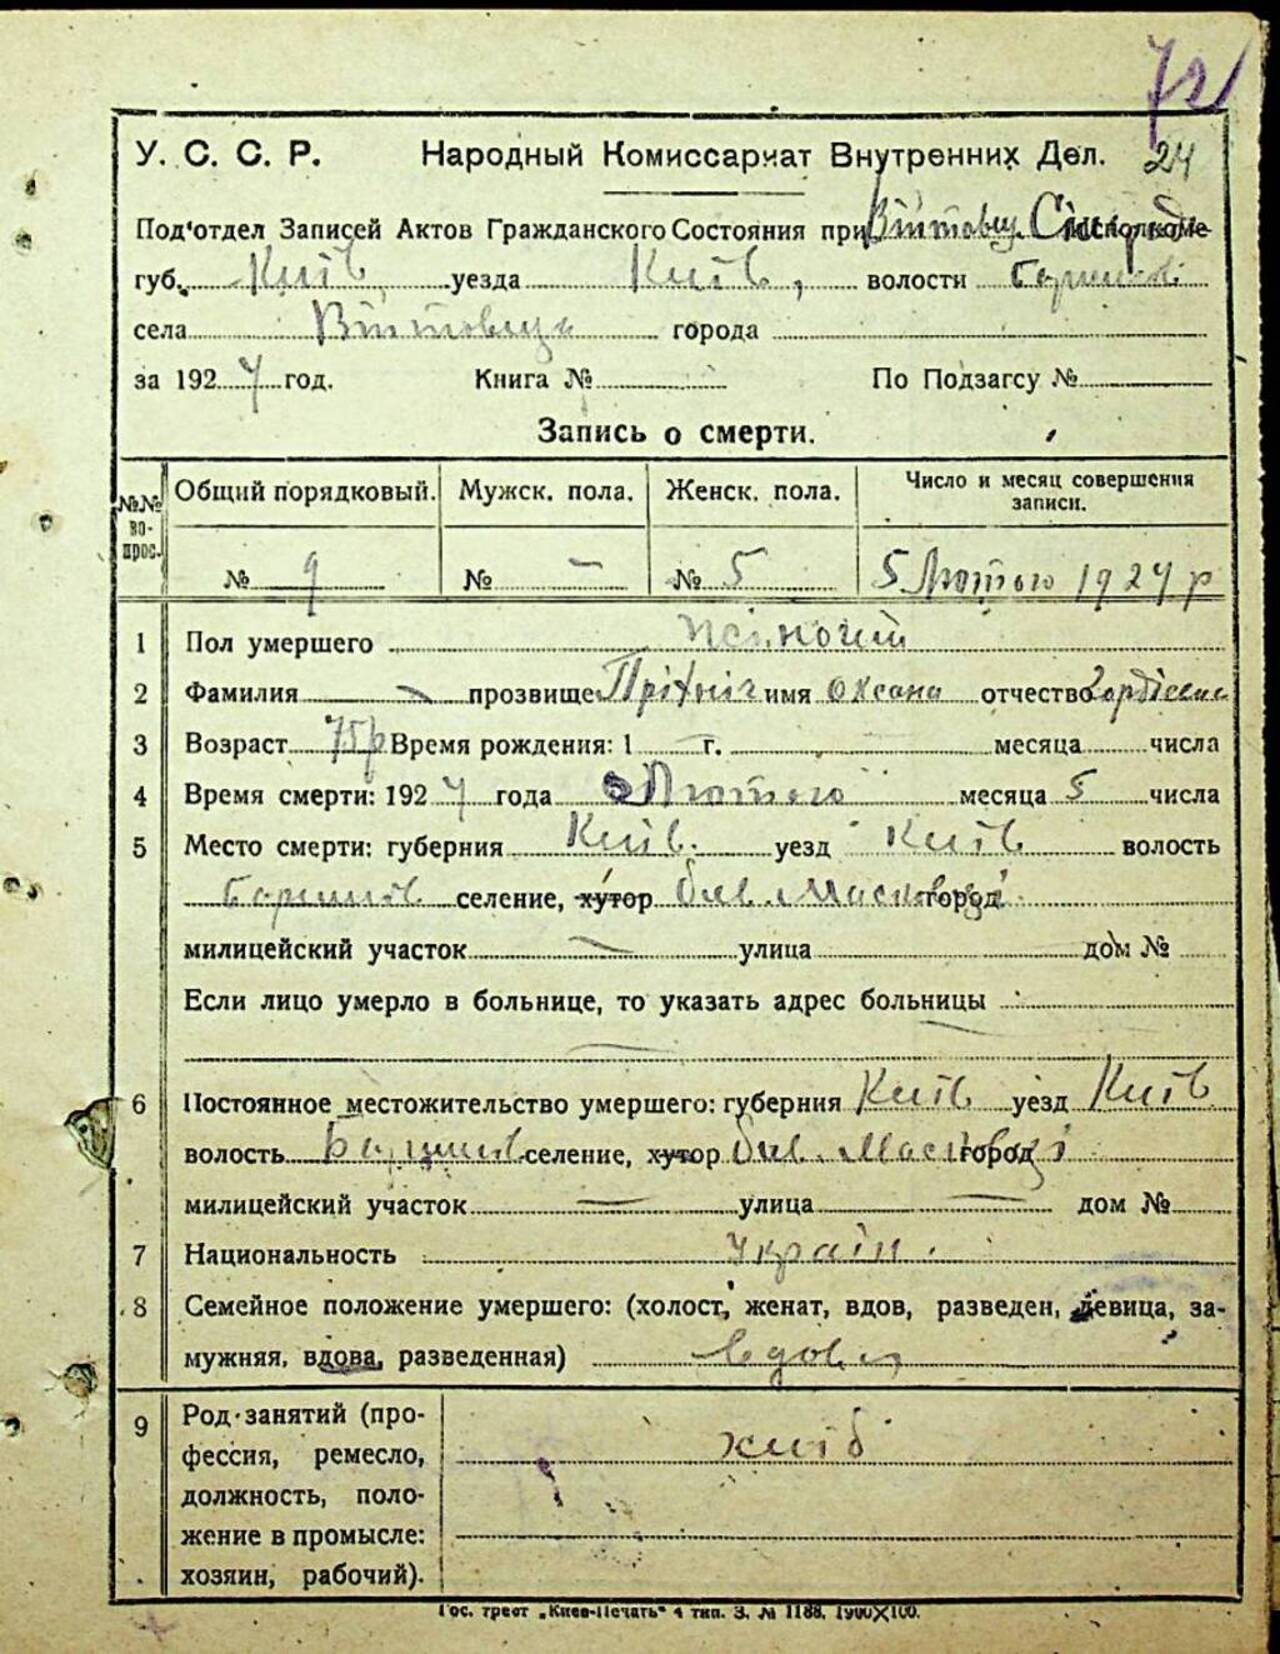 72
У. С. С. Р. Народный Комиссариат Внутренних Дел. 24
Под'отдел Записей Актов Гражданского Состояния при Исполкоме
губ. Київ. уезда Київ, волости
села города
за 1924 год. Книга № По Подзагсу №
Запись о смерти.
№№ вопрос. Общий порядковый. Мужск. пола. Женск. пола. Число и месяц совершения записи.
№ 9 № — № 5 5 Лютого 1924 р
1 Пол умершего жіночий
2 Фамилия — прозвище имя Оксана отчество Гордіевна
3 Возраст 75 р Время рождения: 1 г. месяца числа
4 Время смерти: 1924 года Лютого месяца 5 числа
5 Место смерти: губерния Київ. уезд Київ волость
селение, хутор город
милицейский участок — улица дом №
Если лицо умерло в больнице, то указать адрес больницы
6 Постоянное местожительство умершего: губерния Київ уезд Київ
волость селение, хутор город
милицейский участок — улица — дом №
7 Национальность Україн.
8 Семейное положение умершего: (холост, женат, вдов, разведен, девица, за-
мужняя, вдова, разведенная) вдова
9 Род занятий (про-
фессия, ремесло,
должность, поло-
жение в промысле:
хозяин, рабочий).
хліб
Гос. трест „Киев-Печать“ 4 тип. З. № 1188. 1900×100.